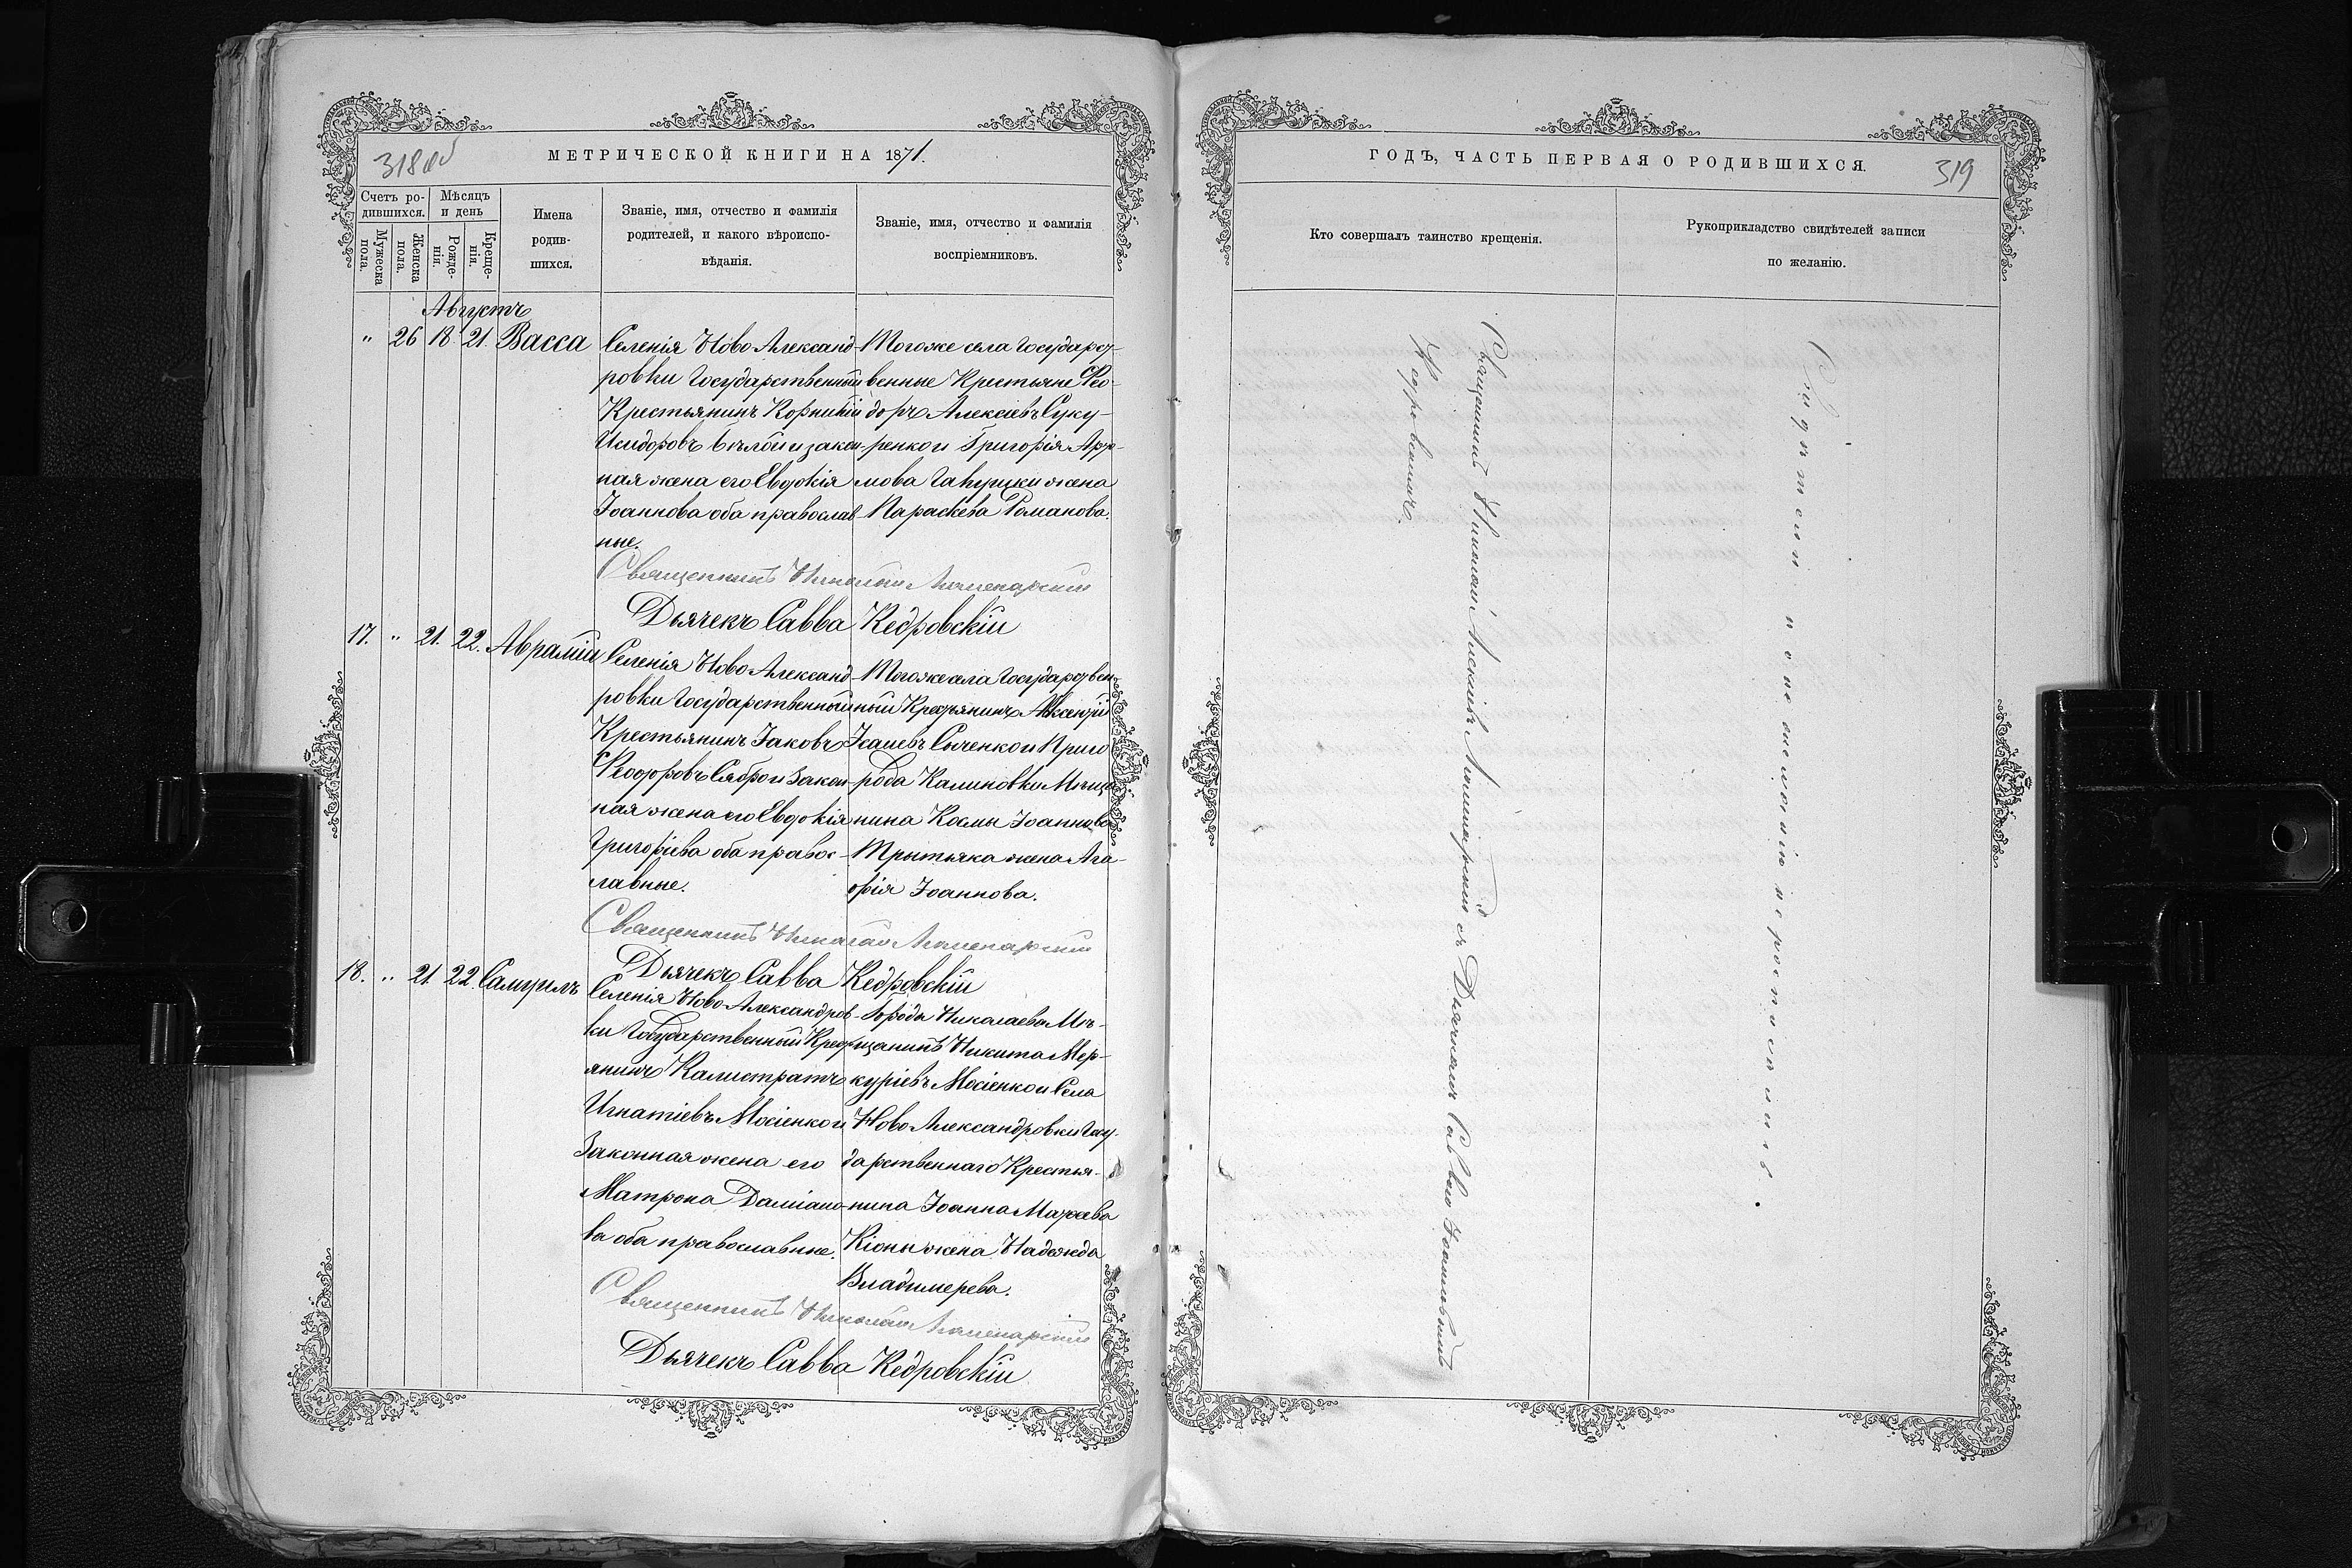 318 об
МЕТРИЧЕСКОЙ КНИГИ НА 1871.
Счетъ ро-
дившихся.
Мѣсяцъ
и день
Мужеска
пола.
Женска
пола.
Рожде-
нія.
Креще-
нія.
Имена
родив-
шихся.
Званіе, имя, отчество и фамилія
родителей, и какого вѣроиспо-
вѣданія.
Званіе, имя, отчество и фамилія
воспріемниковъ.
Августъ
" 26 18 21. Васса
Селенія Ново Александ-
ровки Государственный
Крестьянинъ Корнилій
Исидоровъ и закон-
ная жена его Евдокія
Іоаннова оба православ
ные.
Тогоже села Государст-
венные Крестьяне Ѳео-
доръ Алексіевъ Суку-
ренко и Григорія
жена
Параскева Романова.
Священникъ Николай
Дьячекъ Савва Кедровскій
17. " 21. 22. Аврамій
Селенія Ново Александ-
ровки Государственный
Крестьянинъ Іаковъ
Ѳеодоровъ Сябро и Закон-
ная жена его Евдокія
Григоріева оба правос-
лавные.
Тогоже села Государствен-
ный Крестьянинъ Авксентій
Исаіевъ Сыченко и Приго
рода Калиновки Мѣща
нина Космы Іоаннова
Трытьяка жена Ага-
фія Іоаннова.
Священникъ Николай
Дьячекъ Савва Кедровскій
18. " 21. 22. Самуилъ
Селенія Ново Александров-
ки Государственный Крест
янинъ Калистратъ
Игнатіевъ Мосіенко и
Законная жена его
Матрона Даміано-
ва оба православные.
Города Николаева Мѣ-
щанинъ Никита Мер-
куріевъ Мосіенко и Села
Ново Александровки Госу-
дарственнаго Крестья-
нина Іоанна Матѳеева
Кіоны жена Надежда
Владимерева.
Священникъ Николай
Дьячекъ Савва Кедровскій
ГОДЪ, ЧАСТЬ ПЕРВАЯ О РОДИВШИХСЯ.
319
Кто совершалъ таинство крещенія.
Рукоприкладство свидѣтелей записи
по желанію.
Священникъ Николай съ Дьячкомъ Саввою Іоанновымъ
Кедровскимъ.
Свидѣтели по не желанію не росписались.